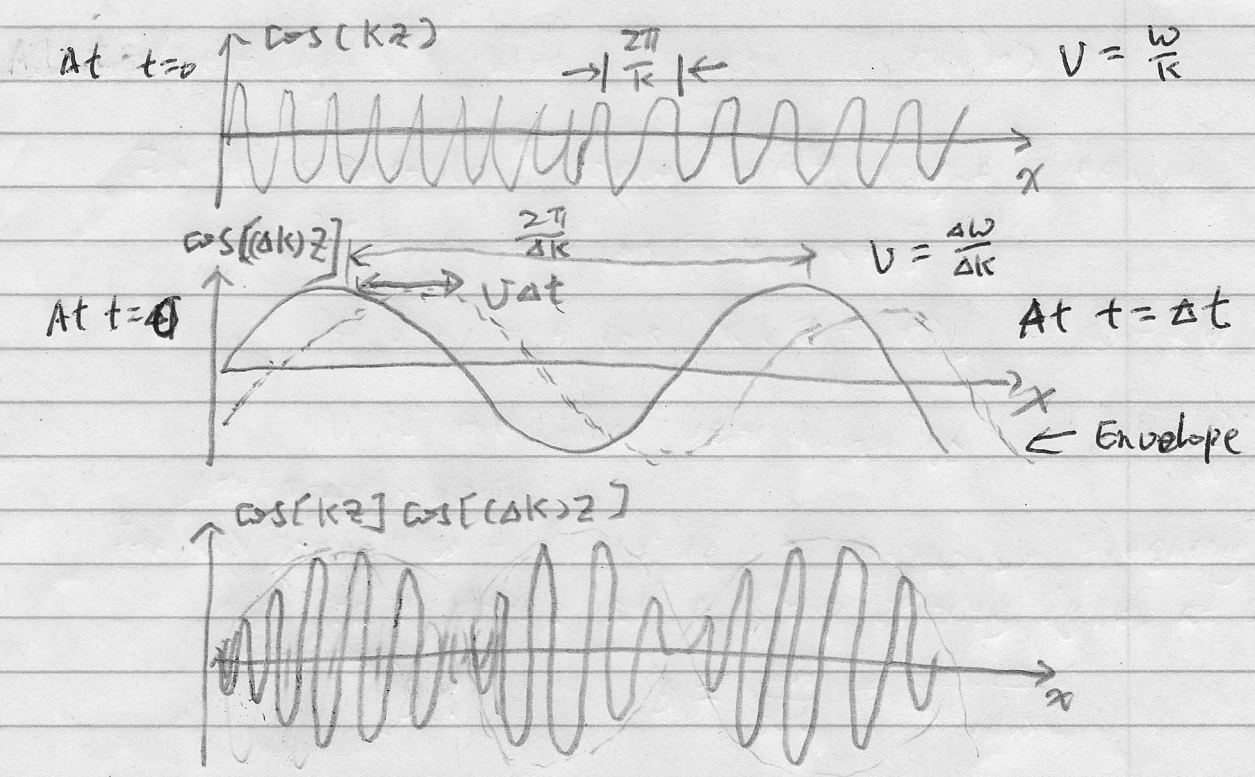 At t=0
cos(kz)
2π/k
v = ω/k
x
cos[(Δk)z]
2π/Δk
v = Δω/Δk
At t=0
vΔt
At t = Δt
x
← Envelope
cos[kz] cos[(Δk)z]
x